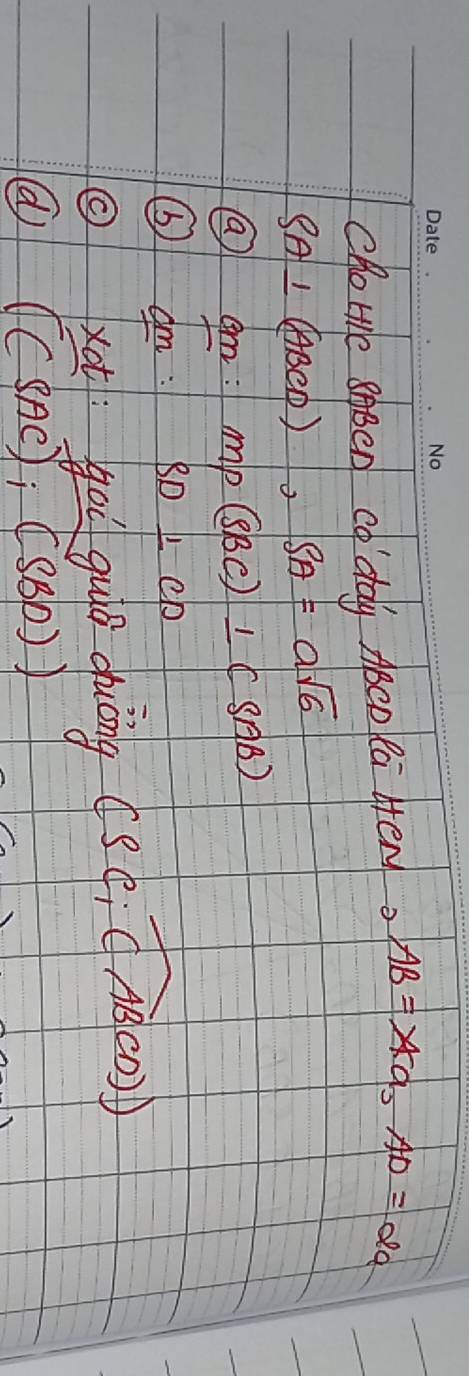 Date No
Cho H/c SABCD có đáy ABCD là HCN, AB = a, AD = 2a
SA ⊥ (ABCD), SA = a√6
a) cm: mp (SBC) ⊥ (SAB)
b) cm: SD ⊥ CD
c) xđ: gói giữa đường (SC; (ABCD))
d) ((SAC); (SBD))